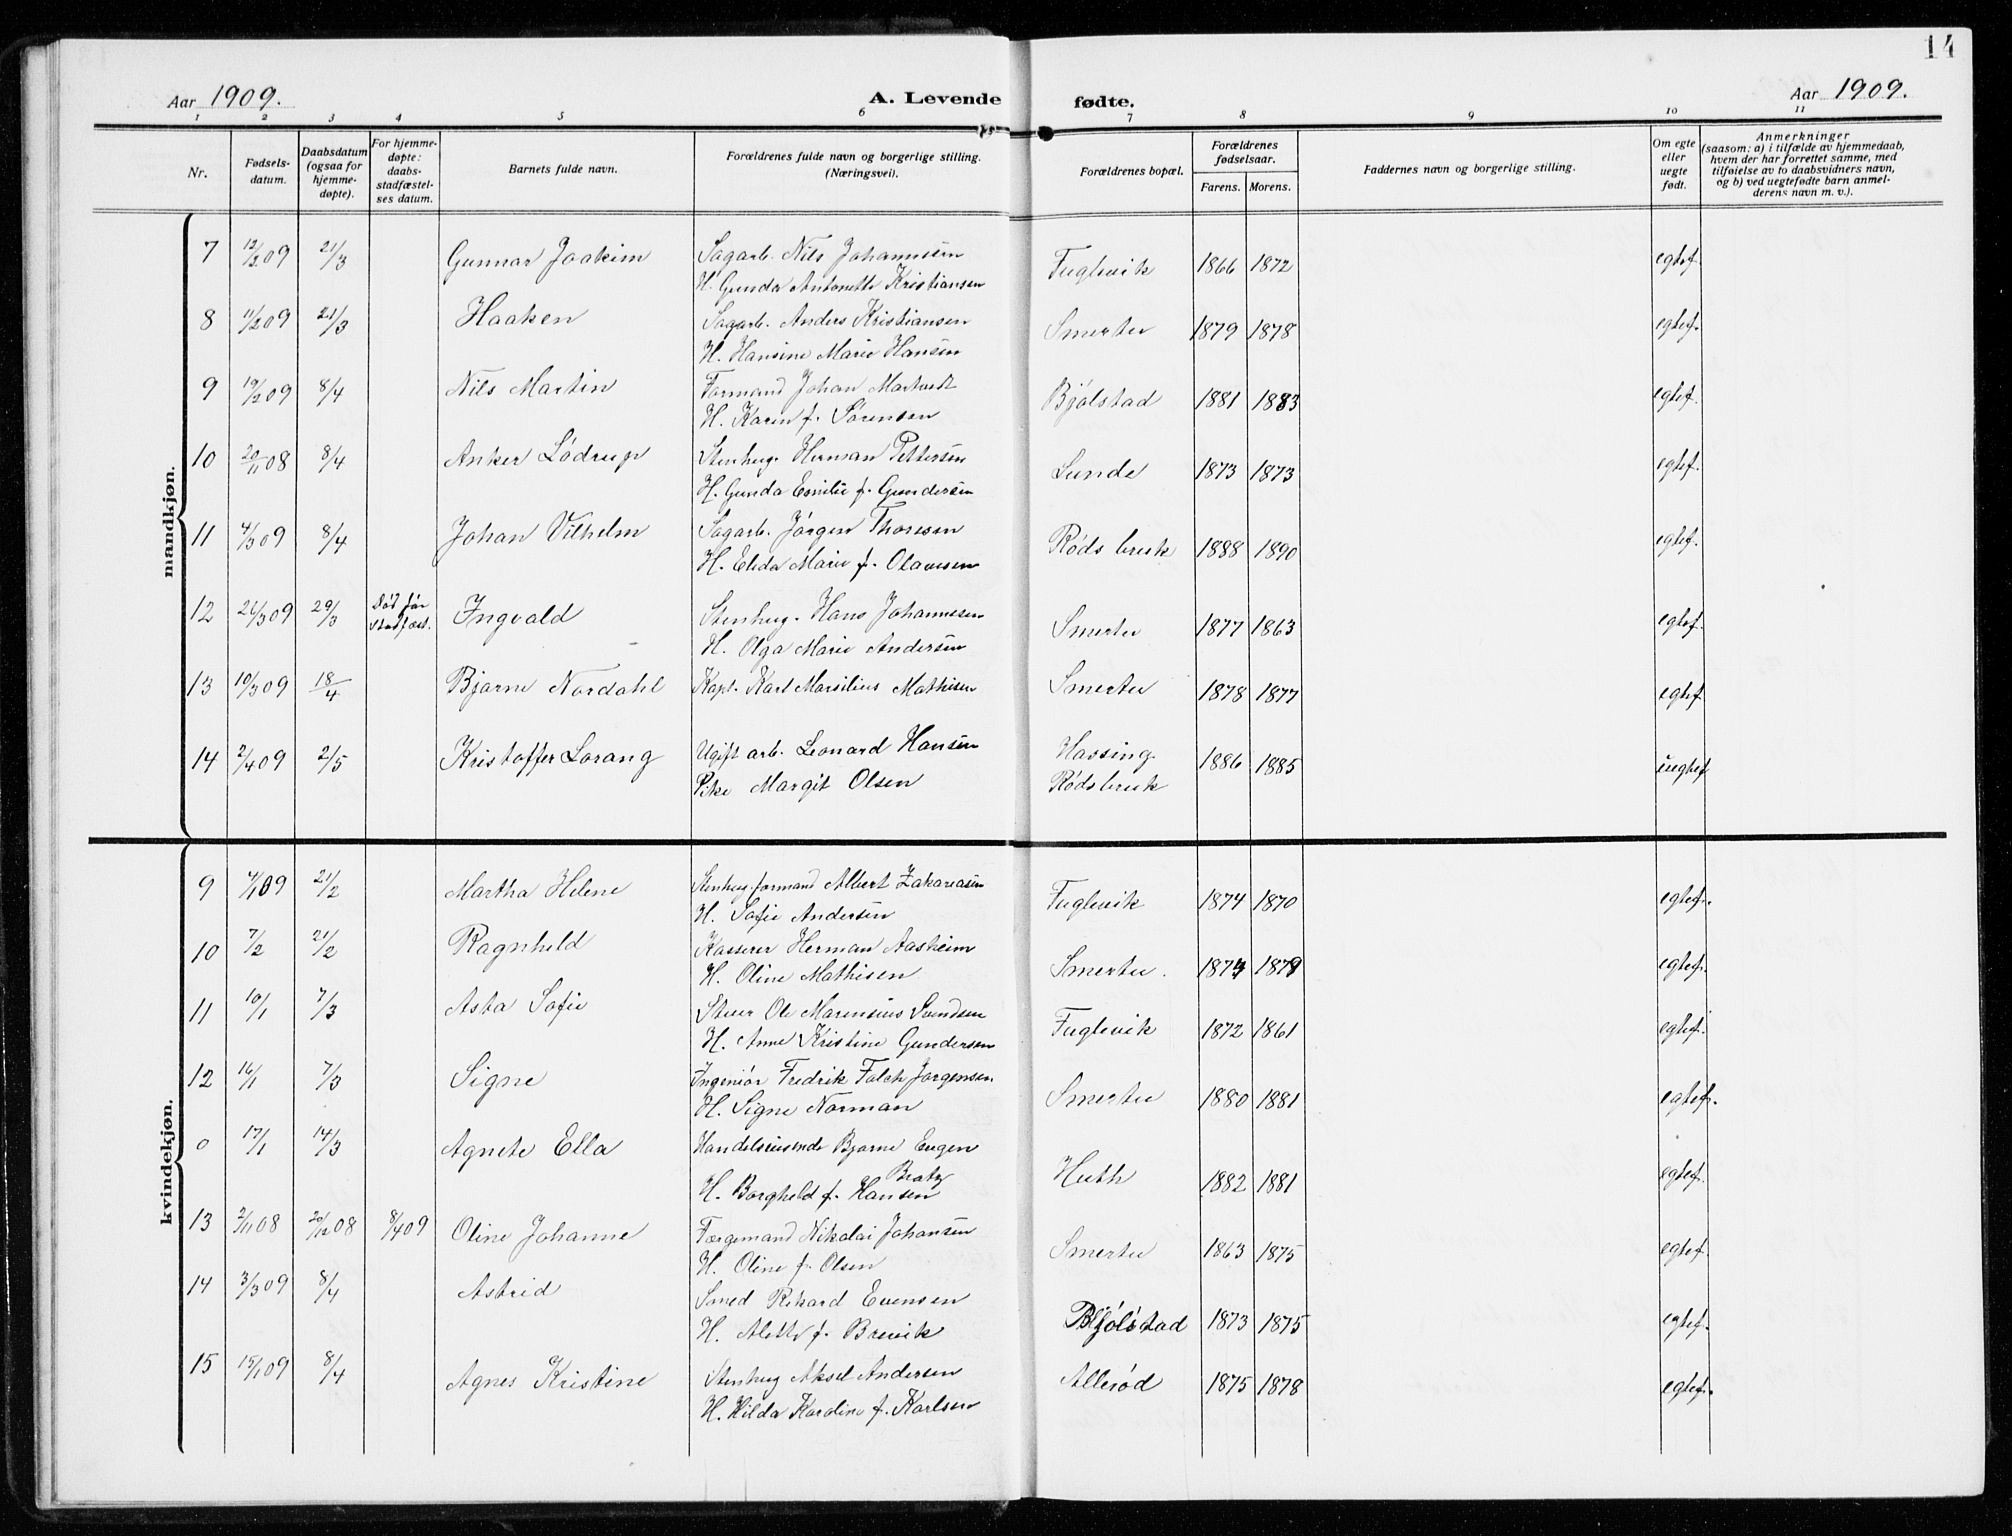 14
Aar 1909.
A. Levende fødte.
Aar 1909.
1 2 3 4 5 6 7 8 9 10 11
Nr.
Fødsels-
datum.
Daabsdatum
(ogsaa for
hjemme-
døpte).
For hjemme-
døpte:
daabs-
stadfæstel-
ses datum.
Barnets fulde navn.
Forældrenes fulde navn og borgerlige stilling.
(Næringsvei).
Forældrenes bopæl.
Forældrenes
fødselsaar.
Farens. Morens.
Faddernes navn og borgerlige stilling.
Om egte
eller
uegte
født.
Anmerkninger
(saasom: a) i tilfælde av hjemmedaab,
hvem der har forrettet samme, med
tilføielse av to daabsvidners navn,
og b) ved uegtefødte barn anmel-
derens navn m. v.).
mandkjøn.
7 12/2 09 21/3 Gunnar Joakim Sagarb. Nils Johannesen Fuglevik 1866 1872 egtef.
H. Gunda Antonette Kristiansen
8 11/2 09 21/3 Haaken Sagarb. Anders Kristiansen Smertu 1879 1878 egtef.
H. Hansine Marie Hansen
9 19/2 09 8/4 Nils Martin Formand Johan Martvedt Bjølstad 1881 1883 egtef.
H. Karin f. Sørensen
10 20/11 08 8/4 Anker Lödrup Stenhug. Herman Pettersen Lunde 1873 1873 egtef.
H. Gunda Emilie f. Gundersen
11 4/3 09 8/4 Johan Vilhelm Sagarb. Jörgen Thoresen Røds bruk 1888 1890 egtef.
H. Elida Marie f. Olavesen
12 21/3 09 29/3 Död för Stadfæst. Ingvald Stenhug. Hans Johannesen Smertu 1877 1863 egtef.
H. Olga Marie Andersen
13 10/3 09 18/4 Bjarne Nordahl Kapt. Karl Marsilius Mathisen Smertu 1878 1877 egtef.
14 2/4 09 2/5 Kristoffer Lorang Ugift arb. Leonard Hansen Hassing 1886 1885 uegtef
Pike Margit Olsen Rødsbruk
kvindekjøn.
9 4/1 09 21/2 Martha Helene Stenhug. formand Albert Zakariasen Fuglevik 1874 1870 egtef.
H. Sofie Andersen
10 7/2 21/2 Ragnhild Kasserer Herman Aasheim Smertu. 1874 1879 egtef.
H. Oline Mathisen
11 10/1 7/3 Asta Sofie Stuer Ole Marensius Svendsen Fuglevik 1872 1861 egtef.
H. Anne Kristine Gundersen
12 16/1 7/3 Signe Ingeniör Fredrik Falch Jørgensen Smertu 1880 1881 egtef.
H. Signe Norman
0 17/1 14/3 Agnete Ella Handelsreisende Bjarne Eugen Huth 1882 1881 egtef.
Bratz
H. Borghild f. Hansen
13 2/11 08 20/12 08 8/4 09 Oline Johanne Færgemand Nikolai Johansen Smertu 1863 1875 egtef.
H. Oline f. Olsen
14 3/3 09 8/4 Astrid Smed Rikard Evensen Bjølstad 1873 1875 egtef.
H. Alette f. Brevik
15 15/1 09 8/4 Agnes Kristine Stenhug Aksel Andersen Allerød 1875 1878 egtef.
H. Hilda Karoline f. Karlsen